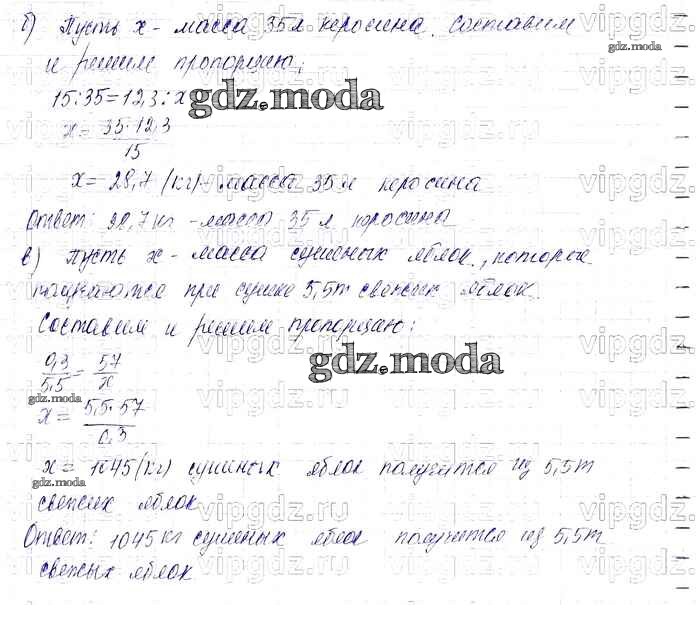 б) Пусть х - масса 35 л керосина. Составим
и решим пропорцию:
15:35=12,3:х
х= 35·12,3
15
х= 28,7 (кг) - масса 35 л керосина
Ответ: 28,7 кг - масса 35 л керосина
в) Пусть х - масса сушеных яблок, которые
при сушке 5,5т свежих яблок.
Составим и решим пропорцию:
0,3 = 57
5,5 х
х= 5,5·57
0,3
х= 1045 (кг) сушеных яблок получится из 5,5т
свежих яблок
Ответ: 1045 кг сушеных яблок получится из 5,5т
свежих яблок
gdz.moda
gdz.moda
gdz.moda
gdz.moda
gdz.moda
vipgdz.ru